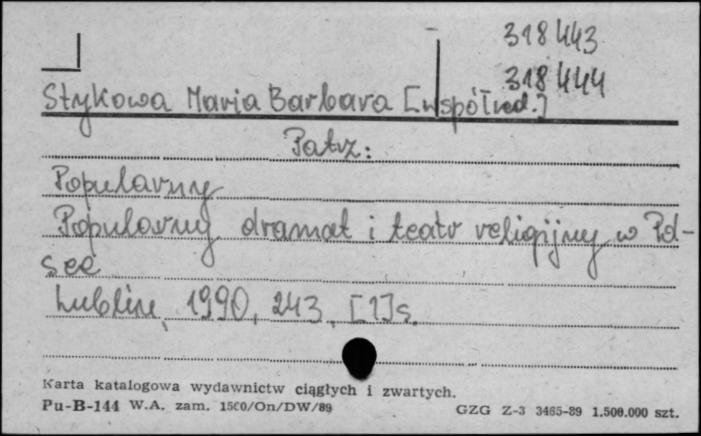 318 443
318 444
Stykowa Maria Barbara [współred.]
Patrz:
Popularny
Popularny dramat i teatr religijny w Pol-
sce
Lublin, 1990, 243, [1]s.
Karta katalogowa wydawnictw ciągłych i zwartych.
Pu-B-144 W.A. zam. 1500/On/DW/89 GZG Z-3 3465-89 1.500.000 szt.